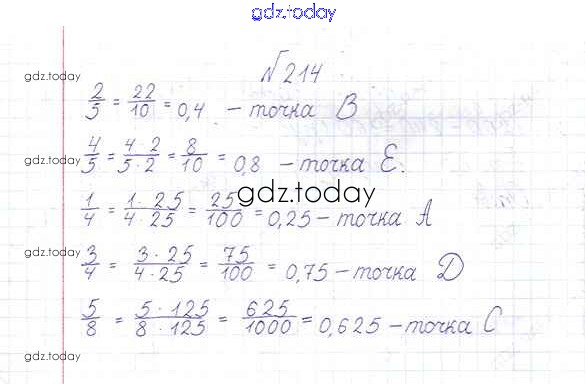 gdz.today
№214
gdz.today
2/5 = 22/10 = 0,4 – точка B
4/5 = 4 2/5·2 = 8/10 = 0,8 – точка E.
gdz.today
gdz.today
1/4 = 1·25/4·25 = 25/100 = 0,25 – точка A
gdz.today
3/4 = 3·25/4·25 = 75/100 = 0,75 – точка D
5/8 = 5·125/8·125 = 625/1000 = 0,625 – точка C
gdz.today